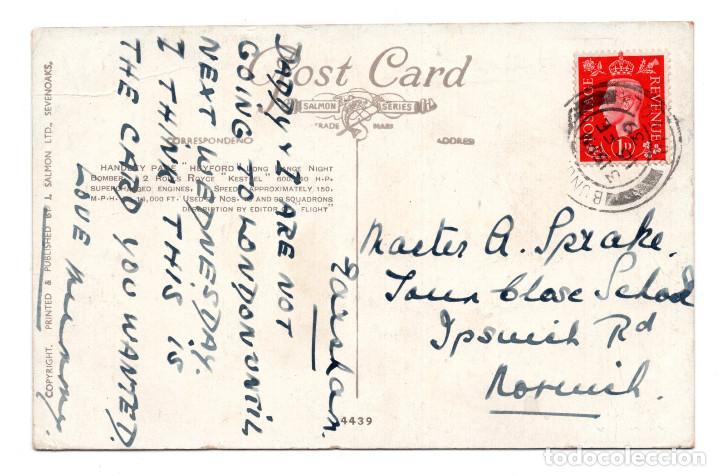 Post Card
SALMON SERIES
TRADE MARK
CORRESPONDENC
ADDRESS
HANDLEY PAGE "HEYFORD" LONG RANGE NIGHT
BOMBER. 2 ROLLS ROYCE "KESTREL" 600 H.P.
SUPERCHARGED ENGINES. SPEED APPROXIMATELY 150
M.P.H. 14,000 FT. USED NOS. AND 99 SQUADRONS
DESCRIPTION BY EDITOR "FLIGHT"
COPYRIGHT. PRINTED & PUBLISHED BY J. SALMON LTD., SEVENOAKS,
4439
POSTAGE
REVENUE
1D
BUN
Earsham.
DADDY & I ARE NOT
GOING TO LONDON UNTIL
NEXT WEDNESDAY.
I THINK THIS IS
THE CARD YOU WANTED.
LOVE Mummy.
Master A. Sprake.
Town Close School
Ipswich Rd
Norwich.
tc todocoleccion.net